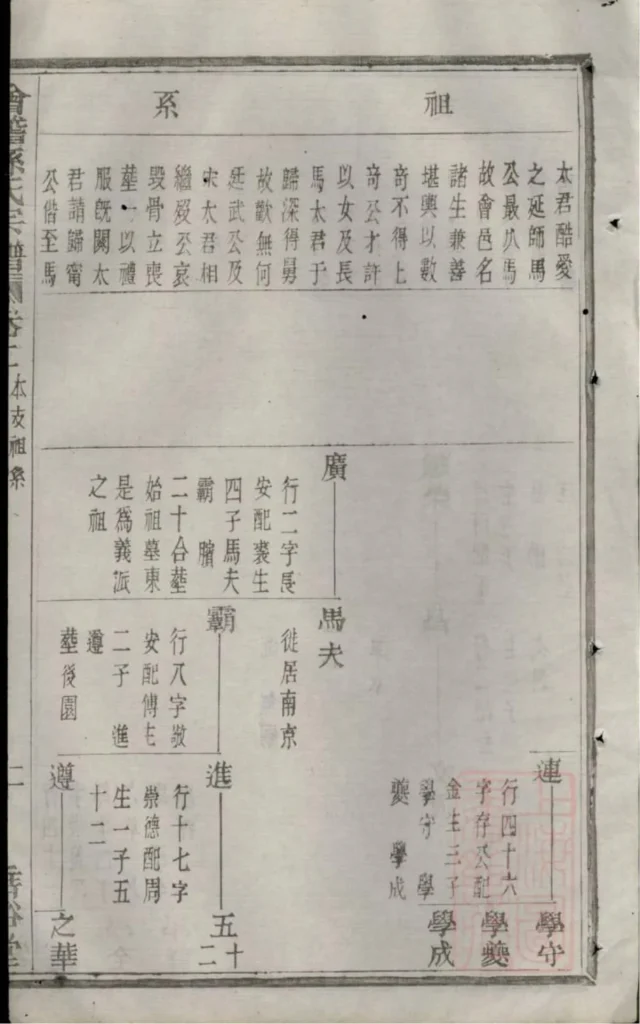 祖系
太君酷愛
之延師馬
公最久馬
故會邑名
諸生兼善
堪輿以數
奇不得上
奇公才許
以女及長
馬太君于
歸深得舅
故歡無何
廷武公及
宋太君相
繼歿公哀
毀骨立喪
葬一以禮
服旣闋太
君請歸甯
公偕至馬
廣
行二字長
安配裘生
四子馬夫
霸
二十合葬
始祖墓東
是為義派
之祖
馬夫
徙居南京
霸
行八字敬
安配傅生
二子進
遵
葬後園
連
行四十六
字存公配
金生三子
學守學
夔學成
進
行十七字
崇德配周
生一子五
十二
遵
學守
學夔
學成
五十二
之華
會稽孫氏宗譜
卷二
本支祖系
二